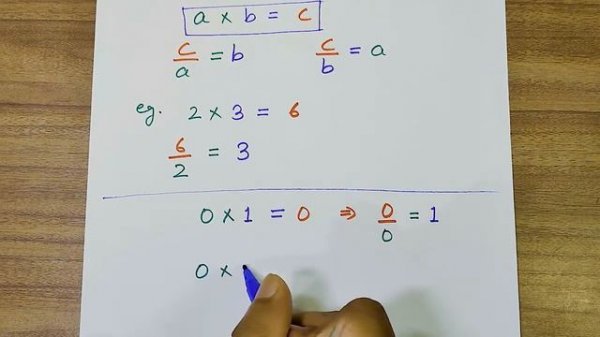 a × b = c
c/a = b    c/b = a
eg. 2 × 3 = 6
6/2 = 3
0 × 1 = 0 ⇒ 0/0 = 1
0 ×